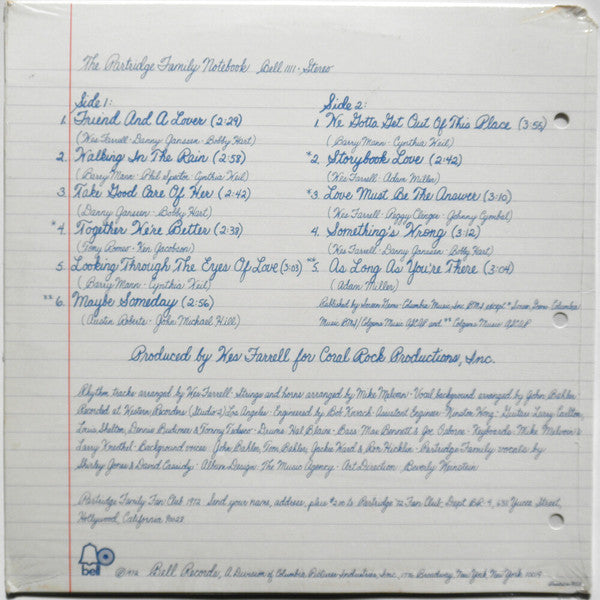 The Partridge Family Notebook Bell 1111 - Stereo
Side 1:
1. Friend And A Lover (2:29)
(Wes Farrell · Danny Janssen · Bobby Hart)
2. Walking In The Rain (2:58)
(Barry Mann · Phil Spector · Cynthia Weil)
3. Take Good Care Of Her (2:42)
(Danny Janssen · Bobby Hart)
*4. Together We're Better (2:38)
(Tony Romeo · Ken Jacobson)
5. Looking Through The Eyes Of Love (3:03)
(Barry Mann · Cynthia Weil)
**6. Maybe Someday (2:56)
(Austin Roberts · John Michael Hill)
Side 2:
1. We Gotta Get Out Of This Place (3:55)
(Barry Mann · Cynthia Weil)
*2. Storybook Love (2:42)
(Wes Farrell · Adam Miller)
*3. Love Must Be The Answer (3:10)
(Wes Farrell · Peggy Clinger · Johnny Cymbal)
4. Something's Wrong (3:12)
(Wes Farrell · Danny Janssen · Bobby Hart)
*5. As Long As You're There (3:04)
(Adam Miller)
Published by Screen Gems-Columbia Music, Inc. BMI, except * Screen Gems-Columbia
Music BMI/Colgems Music ASCAP and ** Colgems Music ASCAP
Produced by Wes Farrell for Coral Rock Productions, Inc.
Rhythm tracks arranged by Wes Farrell · Strings and horns arranged by Mike Melvoin · Vocal background arranged by John Bahler
Recorded at Western Recorders (Studio 2) Los Angeles · Engineered by Bob Kovach · Assistant Engineer · Winston Wong · Guitars Larry Carlton,
Louis Shelton, Dennis Budimer & Tommy Tedesco · Drums Hal Blaine · Bass Max Bennett & Joe Osborne · Keyboards: Mike Melvoin &
Larry Knechtel · Background voices: John Bahler, Tom Bahler, Jackie Ward & Ron Hicklin · Partridge Family vocals by
Shirley Jones & David Cassidy · Album Design: The Music Agency · Art Direction: Beverly Weinstein
Partridge Family Fan Club 1972 Send your name, address, plus $2.00 to Partridge '72 Fan Club · Dept BR-4, 6311 Yucca Street,
Hollywood, California 90028
bell
©1972 Bell Records, A Division of Columbia Pictures Industries, Inc., 1776 Broadway, New York, New York 10019